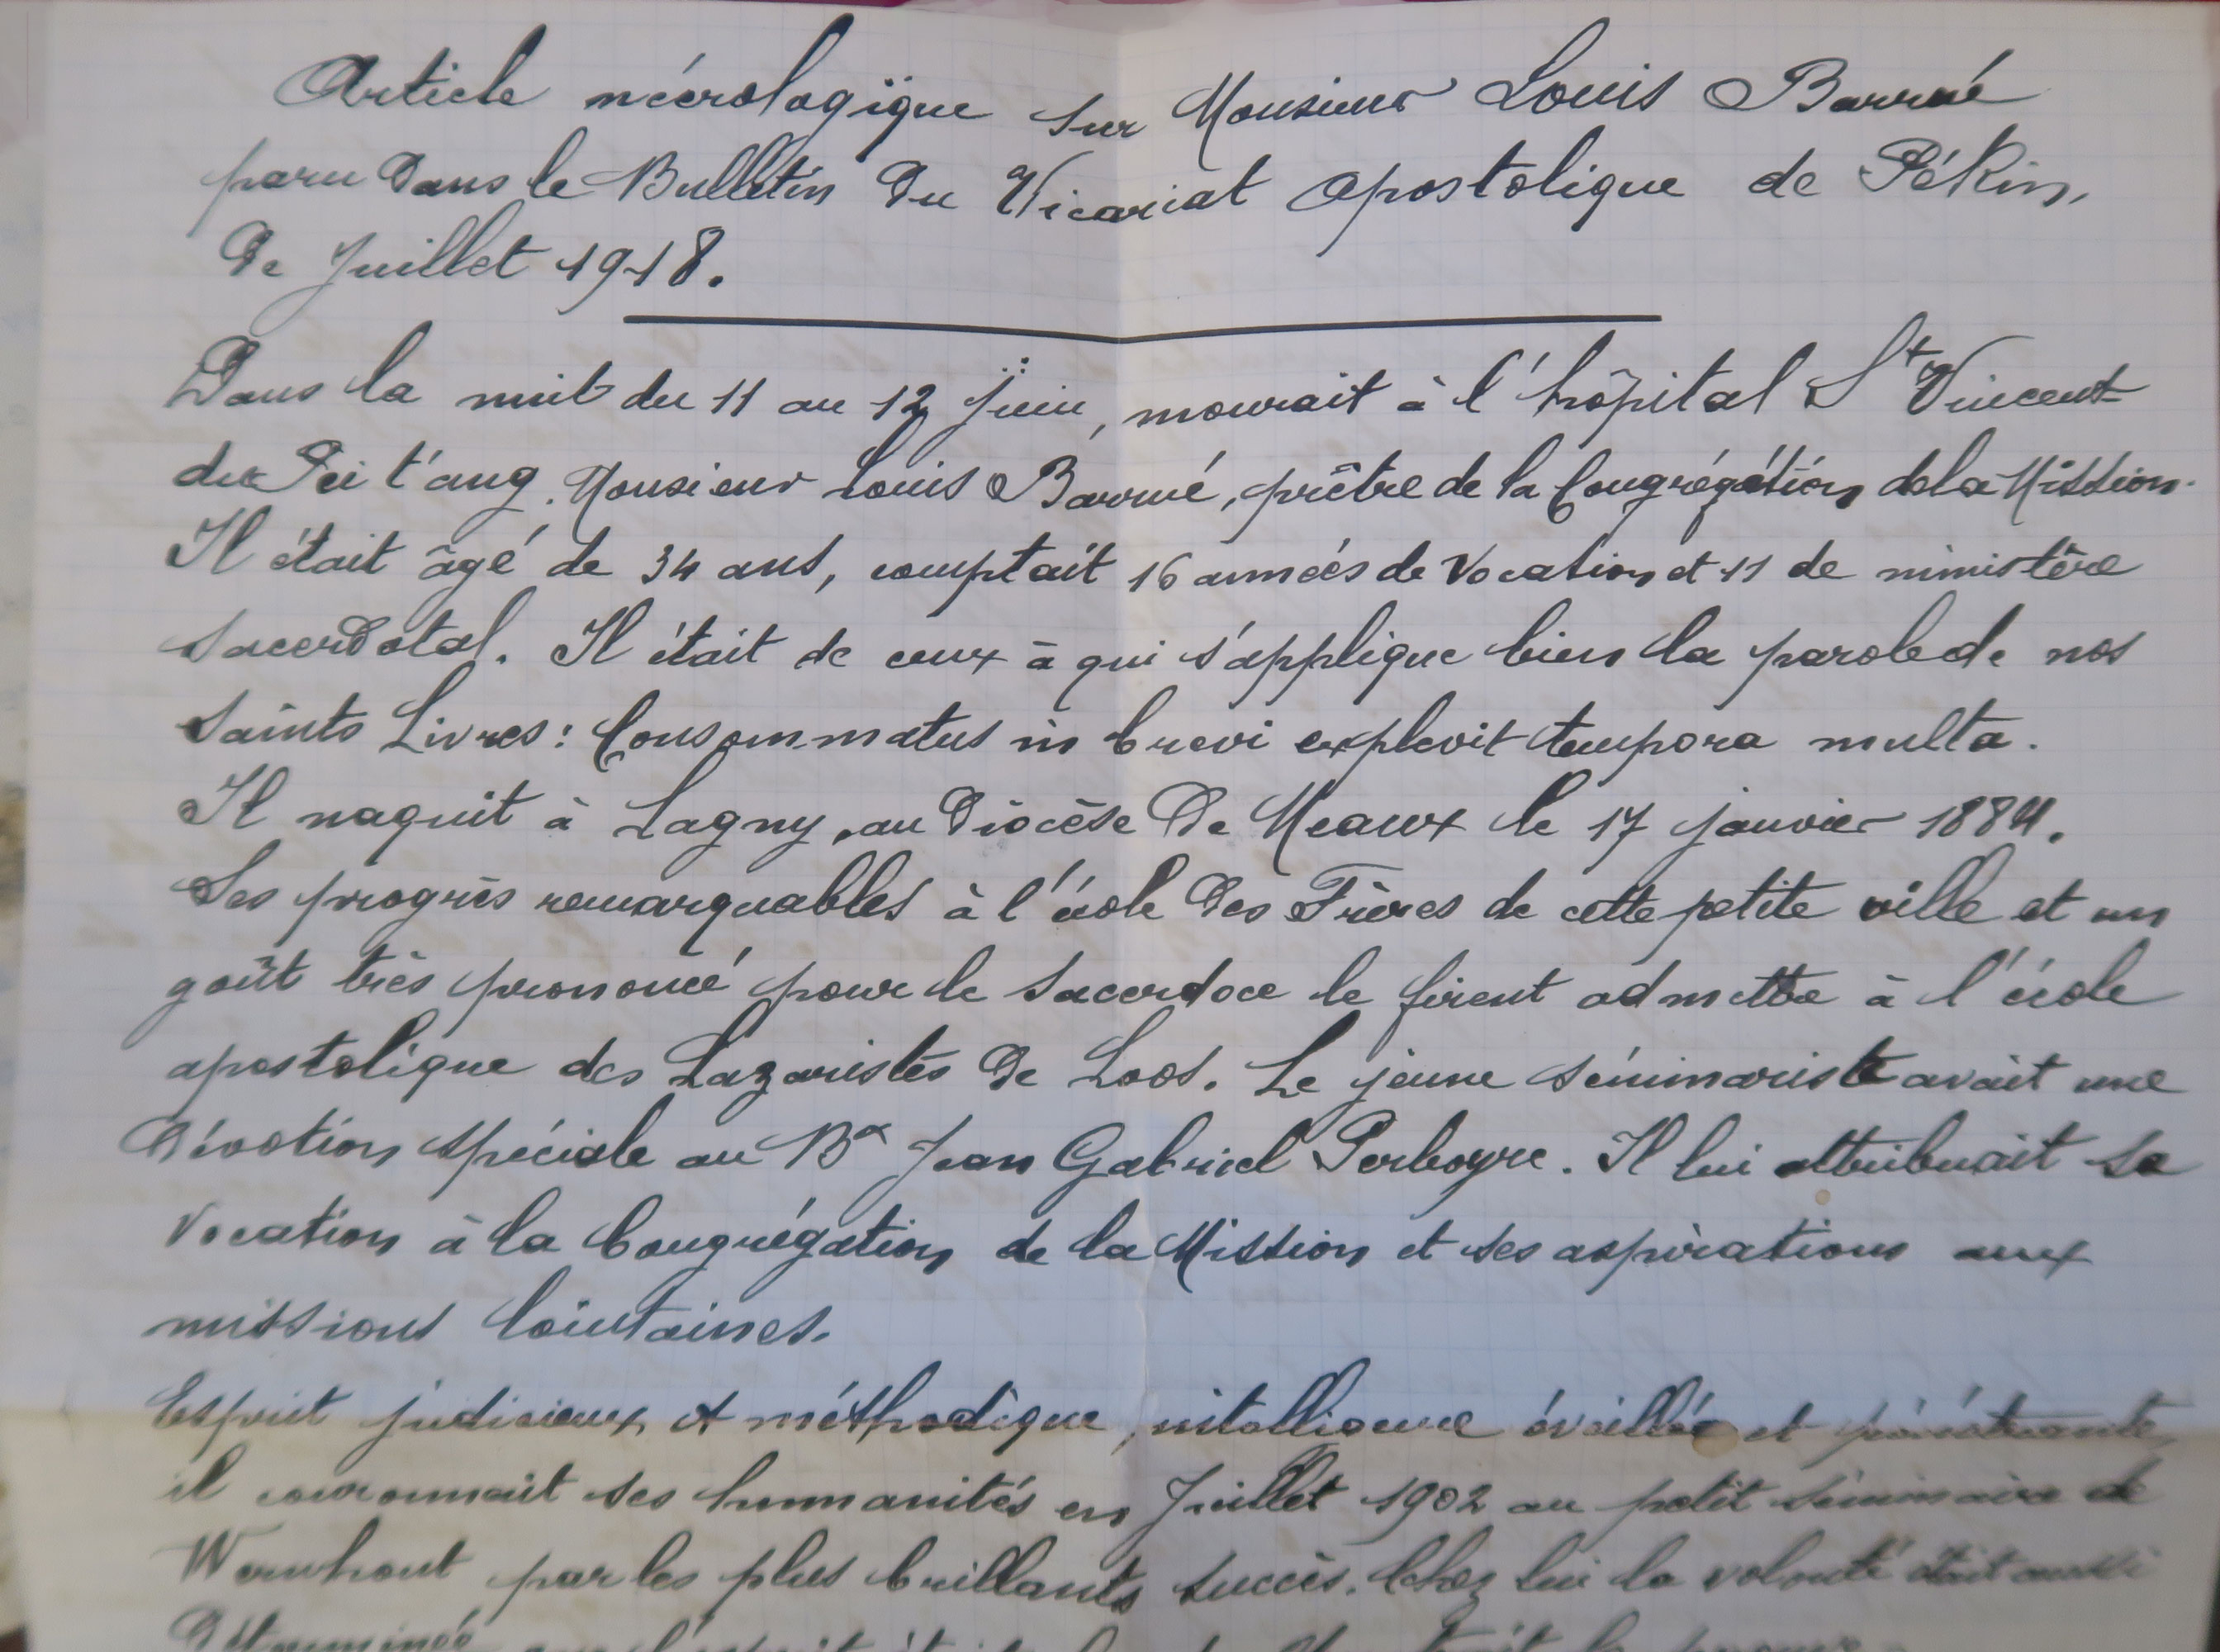 Article nécrologique sur Monsieur Louis Barrué
paru dans le Bulletin du Vicariat Apostolique de Pékin,
de Juillet 1918.
Dans la nuit du 11 au 12 juin, mourait à l'hôpital St Vincent
du Pei t'ang. Monsieur Louis Barrué, prêtre de la Congrégation de la Mission.
Il était âgé de 34 ans, comptait 16 années de vocation et 11 de ministère
sacerdotal. Il était de ceux à qui s'applique bien la parole de nos
Saints Livres : Consommatus in brevi explevit tempora multa.
Il naquit à Lagny, au diocèse de Meaux le 17 janvier 1884.
Ses progrès remarquables à l'école des Frères de cette petite ville et un
goût très prononcé pour le sacerdoce le firent admettre à l'école
apostolique des Lazaristes de Loos. Le jeune séminariste avait une
dévotion spéciale au Bx Jean Gabriel Perboyre. Il lui attribuait sa
vocation à la Congrégation de la Mission et ses aspirations aux
missions lointaines.
Esprit judicieux et méthodique, intelligence éveillée et pénétrante,
il couronnait ses humanités en Juillet 1902 au petit séminaire de
Wormhout par les plus brillants succès. Chez lui la volonté était aussi
déterminée que l'esprit était